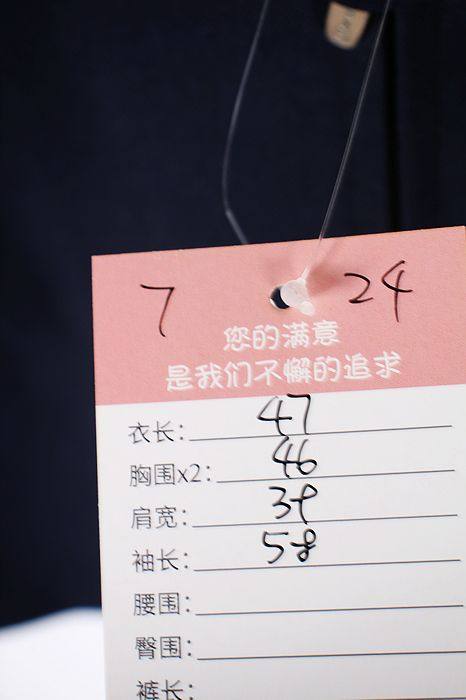 7 24
您的满意
是我们不懈的追求
衣长: 47
胸围x2: 46
肩宽: 39
袖长: 58
腰围:
臀围:
裤长: